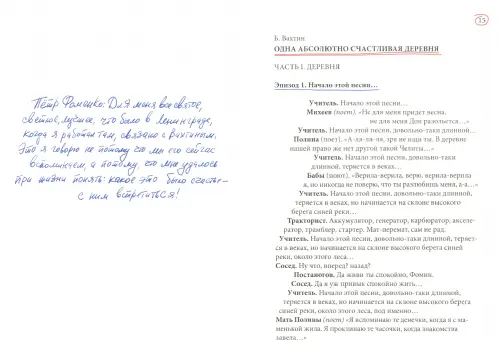 Пётр Фоменко: Для меня все святое,
светлое, лучшее, что было в Ленинграде,
когда я работал там, связано с Вахтиным.
Это я говорю не потому, что мы его сейчас
вспоминаем, а потому, что мне удалось
при жизни понять: какое это было счастье –
с ним встретиться!
15
Б. Вахтин
ОДНА АБСОЛЮТНО СЧАСТЛИВАЯ ДЕРЕВНЯ
ЧАСТЬ 1. ДЕРЕВНЯ
Эпизод 1. Начало этой песни…
Учитель. Начало этой песни…
Михеев (поет). «Не для меня придет весна,
не для меня Дон разольется…»
Учитель. Начало этой песни…
Учитель. Начало этой песни, довольно-таки длинной…
Полина (поет). «А-ля-ля-ля, зря не ищи ты. В деревне
нашей право же нет другой такой Челиты…»
Учитель. Начало этой песни, довольно-таки
длинной, теряется в веках…
Бабы (поют). «Верила-верила, верю, верила-верила
я, но никогда не поверю, что ты разлюбишь меня, а-а…»
Учитель. Начало этой песни, довольно-таки длинной,
теряется в веках, но начинается на склоне высокого
берега синей реки…
Тракторист. Аккумулятор, генератор, карбюратор, акселе-
ратор, трамблер, стартер. Мат-перемат, сам не рад.
Учитель. Начало этой песни, довольно-таки длинной, теряет-
ся в веках, но начинается на склоне высокого берега синей
реки, около этого леса…
Сосед. Ну что, вперед? назад?
Постановов. Да живи ты спокойно, Фомин.
Сосед. Да я уж привык спокойно жить…
Учитель. Начало этой песни, довольно-таки длинной,
теряется в веках, но начинается на склоне высокого берега
синей реки, около этого леса, под именно…
Мать Полины (поет) «Я вспоминаю те денечки, когда я с ма-
менькой жила. Я проклинаю те часочки, когда знакомства
завела…»